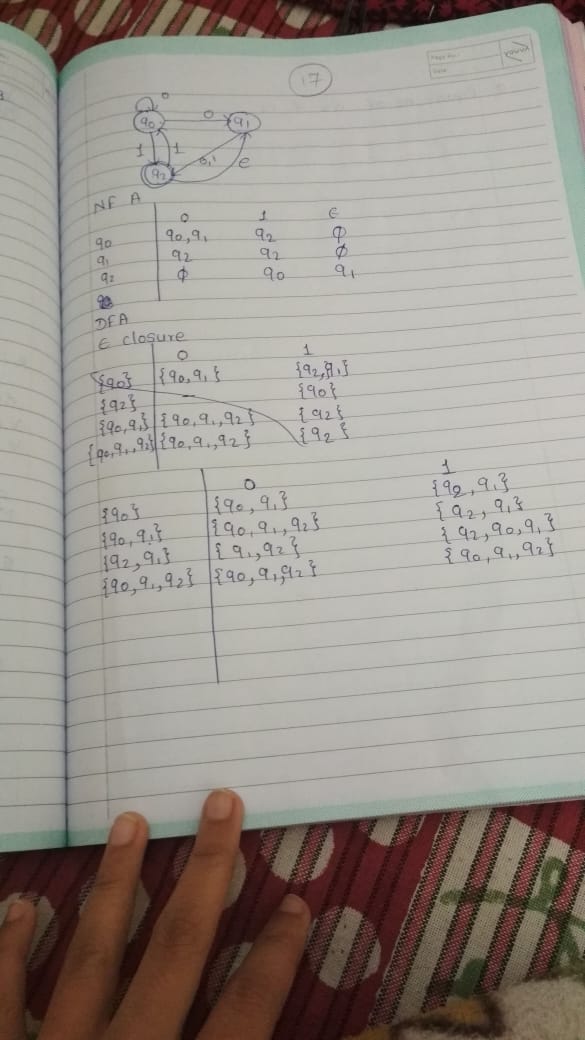 Page No.:
Date:
youva
17
0
q0 0 q1
1 1 0,1 ϵ
q2
NFA
0 1 ϵ
q0 q0,q1 q2 ϕ
q1 q2 q2 ϕ
q2 ϕ q0 q1
DFA
ϵ closure
0 1
{q0} {q0,q1} {q2,q1}
{q2} - {q0}
{q0,q1} {q0,q1,q2} {q2}
{q0,q1,q2} {q0,q1,q2} {q2}
0 1
{q0} {q0,q1} {q2,q1}
{q0,q1} {q0,q1,q2} {q2,q1}
{q2,q1} {q1,q2} {q2,q0,q1}
{q0,q1,q2} {q0,q1,q2} {q0,q1,q2}